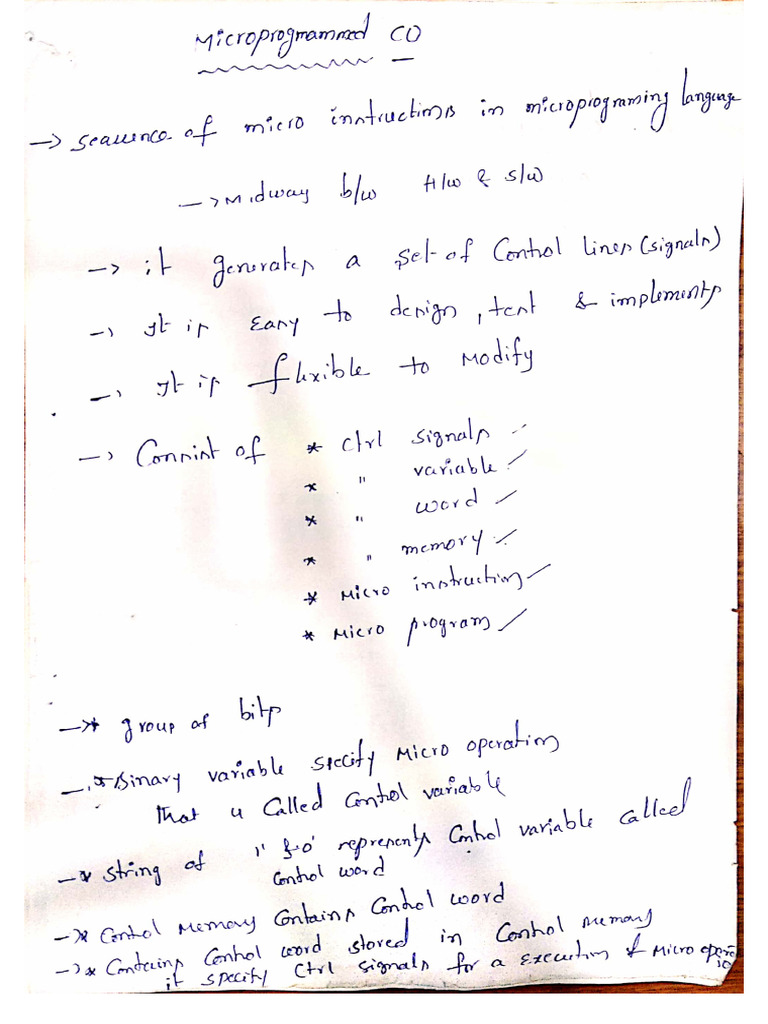 Microprogrammed CO
→ sequence of micro instructions in microprograming language
→ Midway b/w H/w & S/w
→ it generates a set of Control lines (signals)
→ It is Easy to design, test & implements
→ It is flexible to Modify
→ Consist of * Ctrl signals ✓
* " variable ✓
* " word ✓
* " memory ✓
* Micro instruction ✓
* Micro program ✓
→* group of bits
→* Binary variable specify Micro operation
That is Called Control variable
→* String of '1' & '0' represents Control variable called
Control word
→* Control Memory Contains Control word
→* Contains Control word stored in Control Memory
it specify Ctrl signals for a execution of Micro